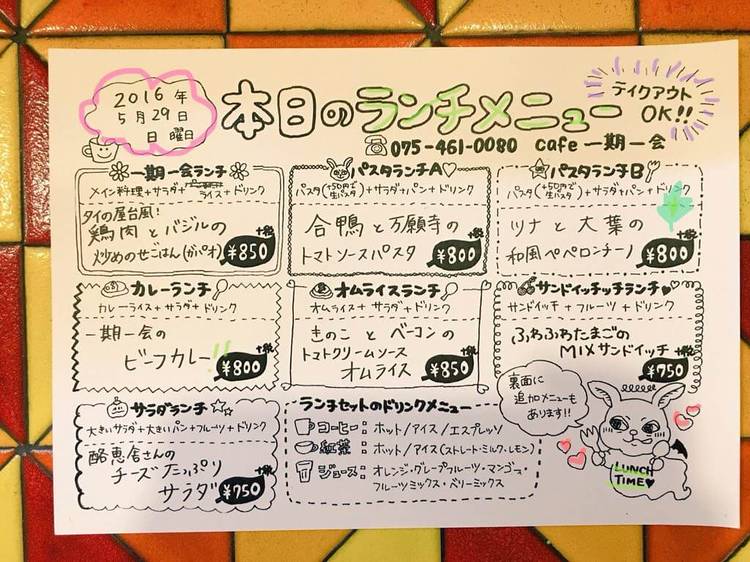 2016年
5月29日
日曜日
本日のランチメニュー
テイクアウト
OK!!
☎075-461-0080 cafe 一期一会
一期一会ランチ
メイン料理+サラダ+ライス+ドリンク
タイの屋台風!
鶏肉とバジルの
炒めのせごはん(ガパオ)
¥850+税
パスタランチA♡
パスタ(+50円で生パスタ)+サラダ+パン+ドリンク
合鴨と万願寺の
トマトソースパスタ
¥800+税
パスタランチB
パスタ(+50円で生パスタ)+サラダ+パン+ドリンク
ツナと大葉の
和風ペペロンチーノ
¥800+税
カレーランチ
カレーライス+サラダ+ドリンク
一期一会の
ビーフカレー!!
¥800+税
オムライスランチ
オムライス+サラダ+ドリンク
きのことベーコンの
トマトクリームソース
オムライス
¥850+税
サンドイッチッチランチ♥
サンドイッチ+フルーツ+ドリンク
ふわふわたまごの
MIXサンドイッチ
¥750+税
サラダランチ
大きいサラダ+大きいパン+フルーツ+ドリンク
酪恵舎さんの
チーズたっぷり
サラダ
¥750+税
ランチセットのドリンクメニュー
コーヒー:ホット/アイス/エスプレッソ
紅茶:ホット/アイス(ストレート・ミルク・レモン)
ジュース:オレンジ・グレープフルーツ・マンゴー・
フルーツミックス・ベリーミックス
裏面に
追加メニューも
あります!!
LUNCH
TIME♥